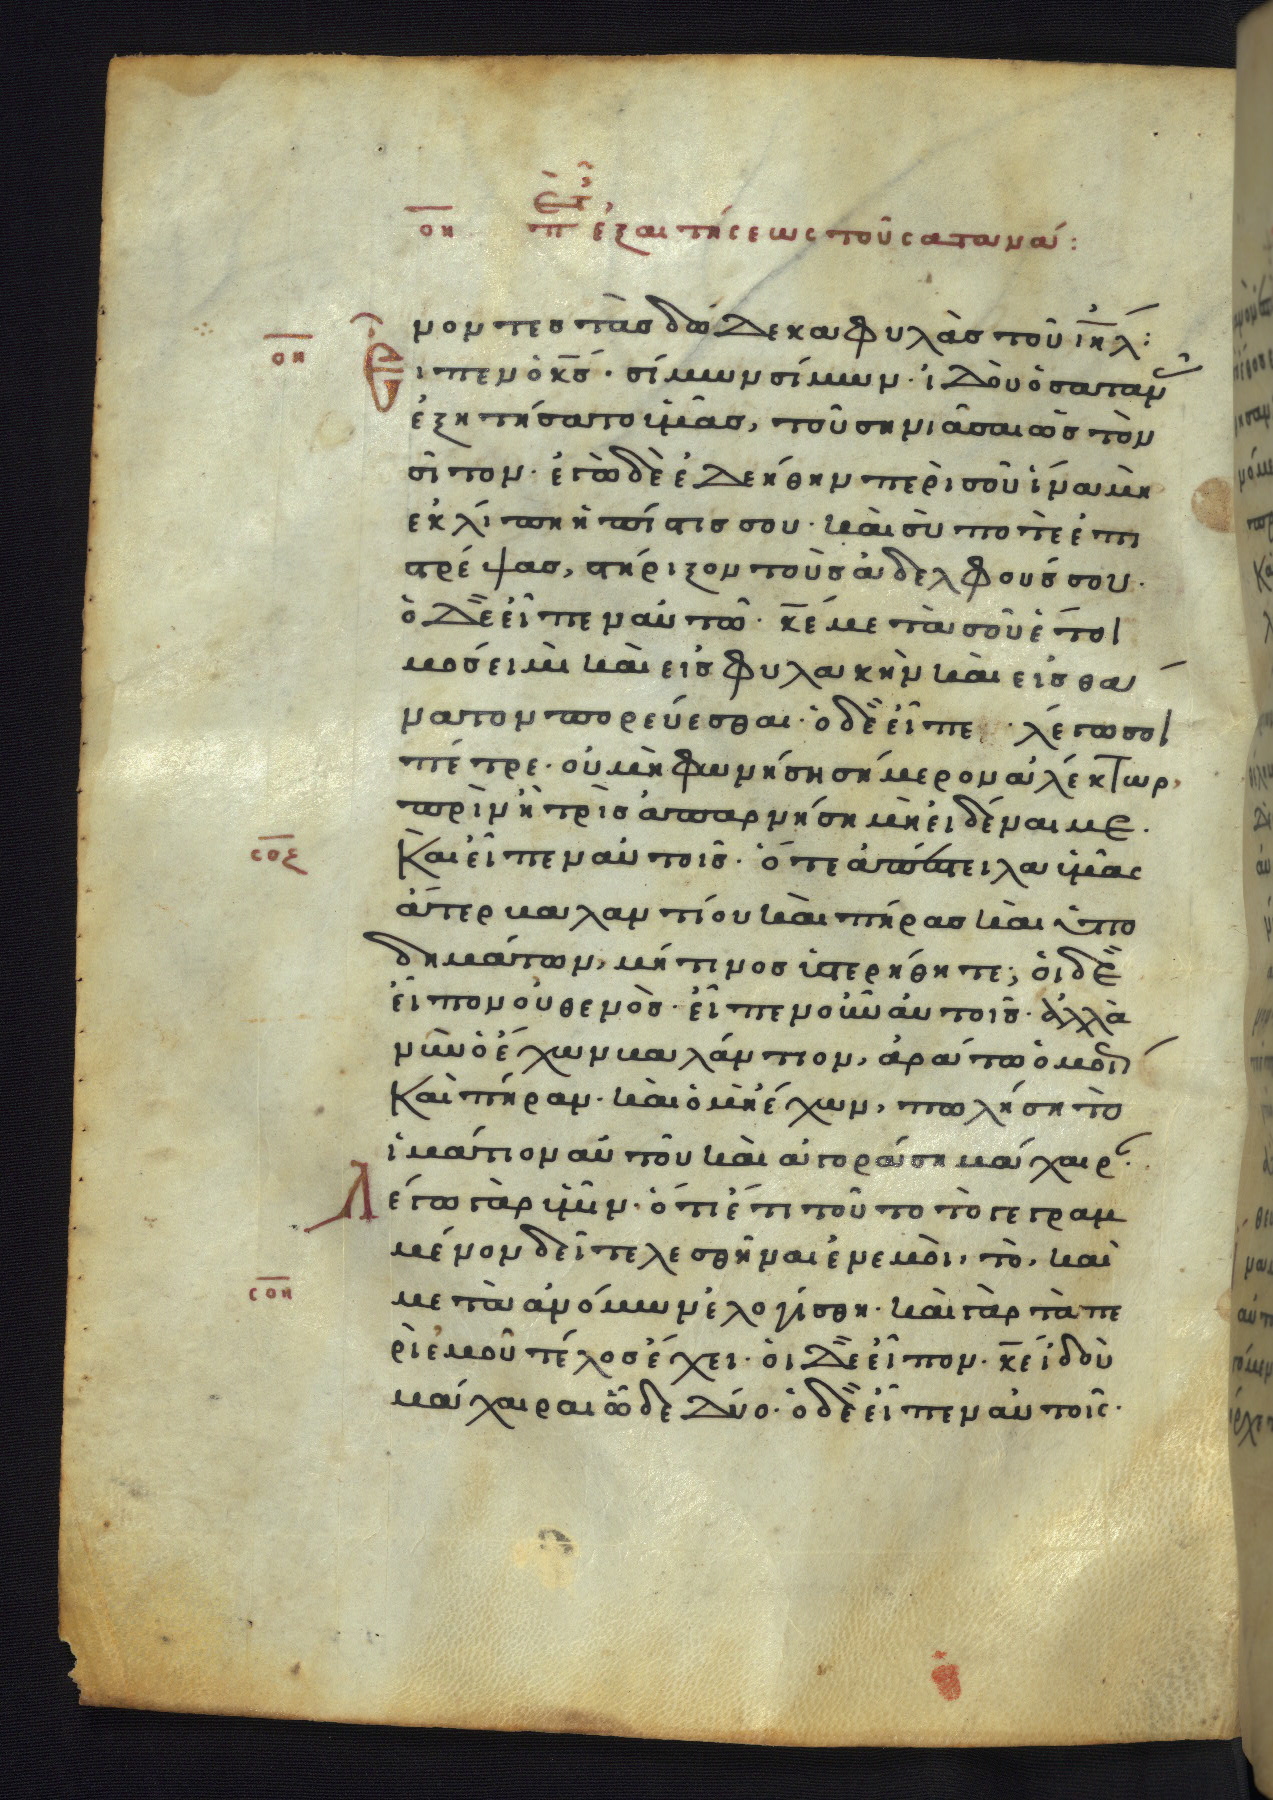 ον περὶ ἐξαιτήσεως τοῦ σατανᾶ:
νοντες τὰς δώδεκα φυλὰς τοῦ ἰη̅λ:
οη Ειπεν ὁ κ̅ς· σίμων σίμων· ἰδοὺ ὁ σαταν
ἐξητήσατο ὑμᾶς, τοῦ σηνιᾶσαι ὡς τὸν
σῖτον· ἐγὼ δὲ ἐδεήθην περὶ σοῦ ἵνα μὴ
εκλίπῃ ἡ πίστις σου· καὶ σύ ποτε ἐπι
στρέψας, στήριξον τοὺς ἀδελφούς σου·
ὁ δὲ εἶπεν αὐτῶ· κ̅ε μετὰ σοῦ ἕτοι
μός εἰμι καὶ εἰς φυλακὴν καὶ εἰς θά
νατον πορεύεσθαι· ὁ δὲ εἶπε · λέγω σοι
πέτρε· οὐ μὴ φωνήση σήμερον ἀλέκτωρ,
πρὶν ἢ τρὶς ἀπαρνήση μὴ εἰδέναι με·
σοξ Καὶ εἶπεν αὐτοῖς· ὅτε ἀπέστειλα ὑμᾶς
ἄτερ βαλαντίου καὶ πήρας καὶ ὑπο
δημάτων, μή τινος ὑστερήθητε; οἱ δὲ
εἶπον οὐθενὸς· εἶπεν οὖν αὐτοῖς· ἀλλὰ
νῦν ὁ ἔχων βαλάντιον, ἀράτω ὁμοί
Καὶ πήραν· καὶ ὁ μὴ ἔχων, πωλήση τὸ
ἱμάτιον αὐτοῦ καὶ ἀγοράση μάχαιρ·
Λέγω γὰρ ὑμῖν· ὅτι ἔτι τοῦτο τὸ γεγραμ
μένον δεῖ τελεσθῆναι ἐν ἐμοὶ, τὸ, καὶ
σοη μετὰ ἀνόμων ἐλογίσθη· καὶ γὰρ τὰ πε
ρὶ ἐμοῦ τέλος ἔχει· οἱ δὲ εἶπον· κ̅ε ἰδοὺ
μάχαιραι ὧδε δύο· ὁ δὲ εἶπεν αὐτοῖς·